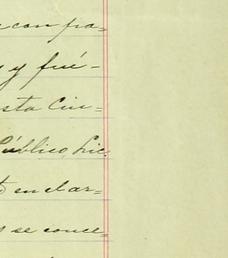 con pa-
y fué-
sta Ciu-
público, Lic.
en el ar-
se conce-